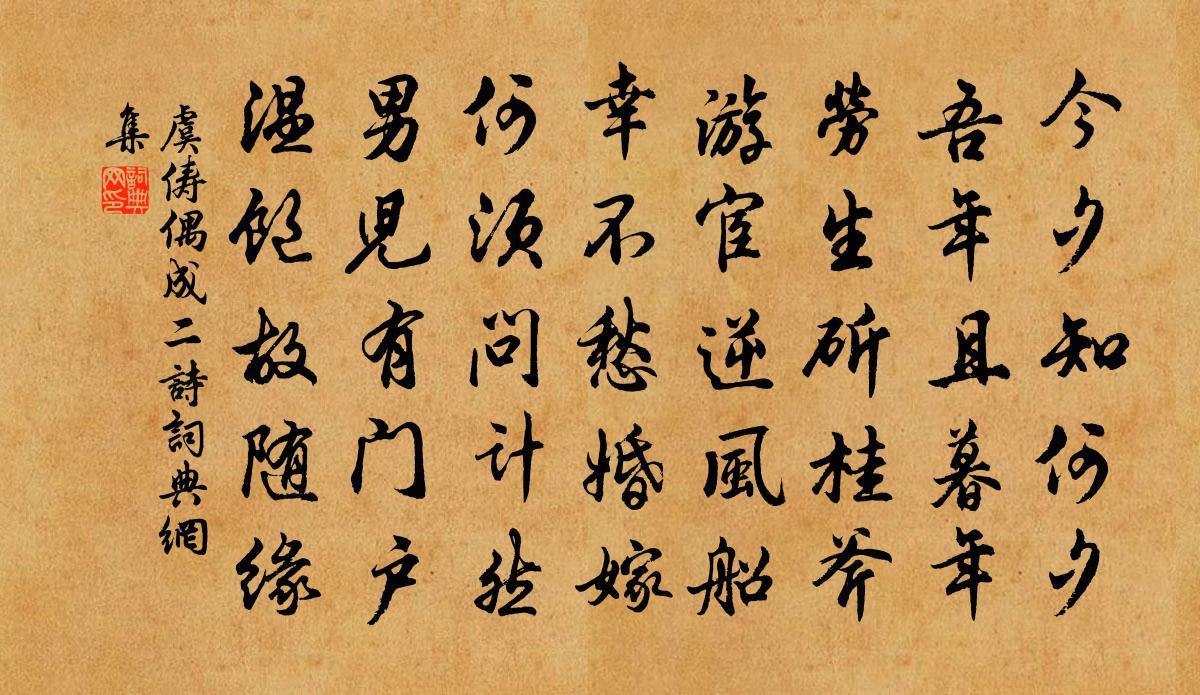 今夕知何夕
吾年且暮年
勞生斫桂斧
游宦逆風船
幸不愁婚嫁
何須問計然
男兒有門户
温飽故随緣
虞儔偶成二詩詞典網
集
詞典网印